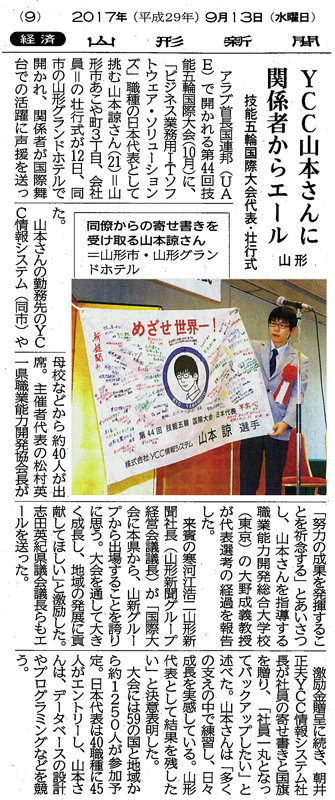 (9) 2017年(平成29年)9月13日(水曜日)
経済 山形新聞
YCC山本さんに
関係者からエール
山形
技能五輪国際大会代表・壮行式
アラブ首長国連邦(UA
E)で開かれる第44回技
能五輪国際大会(10月)に、
「ビジネス業務用IT・ソフ
トウェア・ソリューション
ズ」職種の日本代表として
挑む山本諒さん(21)=山
形市あこや町3丁目、会社
員=の壮行式が12日、同
市の山形グランドホテルで
開かれ、関係者が国際舞
台での活躍に声援を送っ
た。
山本さんの勤務先のYC
C情報システム(同市)や
同僚からの寄せ書きを
受け取る山本諒さん
=山形市・山形グラン
ドホテル
めざせ世界一!
第44回 技能五輪 国際大会 日本代表
山本 諒 選手
株式会社YCC情報システム
母校などから約40人が出
席。主催者代表の松村英
一県職業能力開発協会長が
「努力の成果を発揮するこ
とを祈念する」とあいさつ
し、山本さんを指導する
職業能力開発総合大学校
(東京)の大野成義教授
が代表選考の経過を報告
した。
来賓の寒河江浩二山形新
聞社長(山形新聞グループ
経営会議議長)が「国際大
会に本県から、山新グルー
プから出場することを誇り
に思う。大会を通して大き
く成長し、地域の発展に貢
献してほしい」と激励した。
志田英紀県議会議長らもエ
ールを送った。
激励金贈呈に続き、朝井
正夫YCC情報システム社
長が社員の寄せ書きと国旗
を贈り、「社員一丸となっ
てバックアップしたい」と
述べた。山本さんは「多く
の支えの中で練習し、日々
成長を実感している。山形
代表として結果を残した
い」と決意表明した。
大会には59の国と地域か
ら約1250人が参加予
定。日本代表は40職種に45
人がエントリーし、山本さ
んは、データベースの設計
やプログラミングなどを競
う。